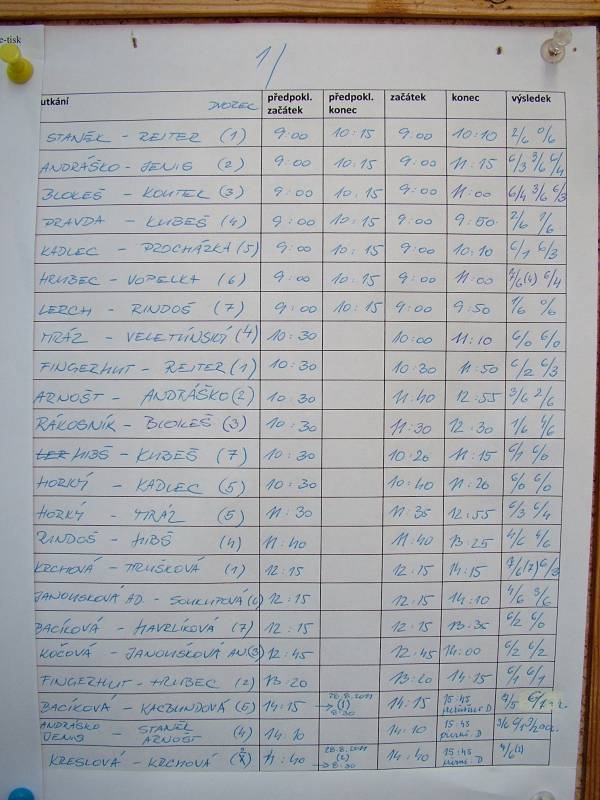 e-tisk
1/
utkání DVOREC předpokl. začátek předpokl. konec začátek konec výsledek
STANĚK - REITER (1) 9:00 10:15 9:00 10:10 2/6 0/6
ANDRÁŠKO - JENIG (2) 9:00 10:15 9:00 11:15 6/3 3/6 6/4
BLOKEŠ - KOUTEK (3) 9:00 10:15 9:00 11:00 6/4 3/6 6/3
PRAVDA - KUBEŠ (4) 9:00 10:15 9:00 9:50 2/6 1/6
KADLEC - PROCHÁZKA (5) 9:00 10:15 9:00 10:10 6/1 6/3
HRUBEC - VOPELKA (6) 9:00 10:15 9:00 11:00 7/6(4) 6/4
LERCH - RINDOŠ (7) 9:00 10:15 9:00 9:50 1/6 0/6
MRÁZ - VELETÍNSKÝ (4) 10:30 10:00 11:10 6/0 6/0
FINGERHUT - REITER (1) 10:30 10:30 11:50 6/2 6/3
ARNOŠT - ANDRÁŠKO (2) 10:30 11:40 12:55 3/6 2/6
RÁKOSNÍK - BLOKEŠ (3) 10:30 11:30 12:30 1/6 4/6
HIBŠ - KUBEŠ (7) 10:30 10:20 11:15 6/1 6/0
HORKÝ - KADLEC (5) 10:30 10:40 11:20 6/0 6/0
HORKÝ - MRÁZ (5) 11:30 11:35 12:55 6/3 6/4
RINDOŠ - HIBŠ (4) 11:40 11:40 13:25 4/6 4/6
KRCHOVÁ - TRUŠKOVÁ (1) 12:15 12:15 14:15 7/6(7) 6/3
JANOUŠKOVÁ AD. - SOUKUPOVÁ (6) 12:15 12:15 14:10 4/6 3/6
BACÍKOVÁ - HAVRLÍKOVÁ (7) 12:15 12:15 13:35 6/2 6/0
KOČOVÁ - JANOUŠKOVÁ AN (3) 12:45 12:45 14:00 6/2 6/2
FINGERHUT - HRUBEC (2) 13:20 13:20 14:15 6/1 6/1
BACÍKOVÁ - KACBUNDOVÁ (5) 14:15 28.8.2011 → (1) 8:30 14:15 15:45 D
ANDRÁŠKO JENIG - STANĚK ARNOŠT (4) 14:10 14:10 15:45 D 3/6
KRESLOVÁ - KRCHOVÁ 14:40 28.8.2011 (2) → 8:30 14:40 15:45 D 4/6